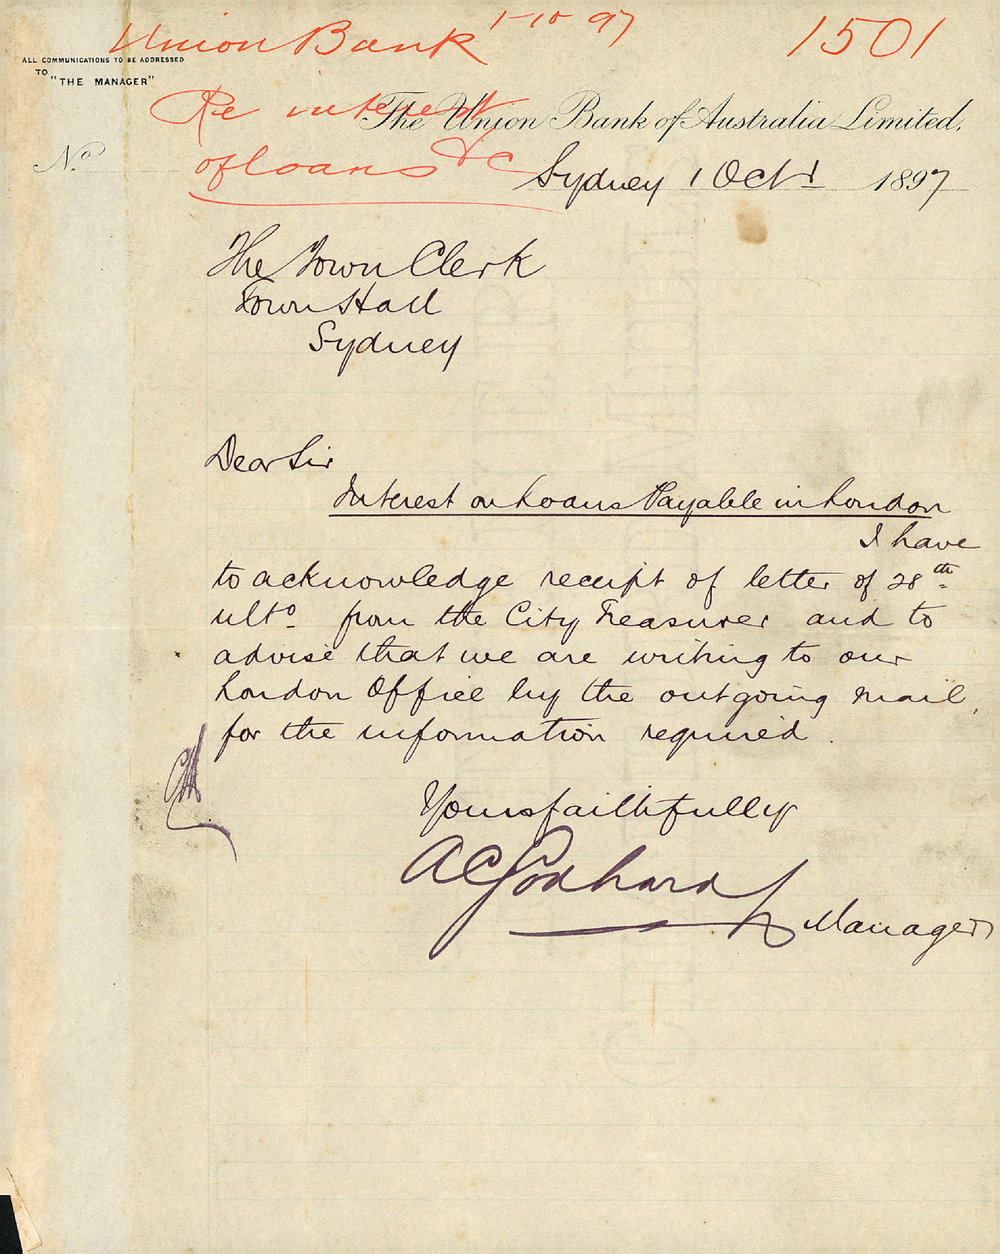 Union Bank 1-10-97 1501
ALL COMMUNICATIONS TO BE ADDRESSED
TO "THE MANAGER"
Re interest
The Union Bank of Australia Limited.
No.
of loans &c
Sydney 1 Oct 1897
The Town Clerk
Town Hall
Sydney
Dear Sir
Interest on Loans Payable in London
I have
to acknowledge receipt of letter of 28th
ulto from the City Treasurer and to
advise that we are writing to our
London Office by the outgoing mail,
for the information required.
Yours faithfully
A C Godhard
Manager